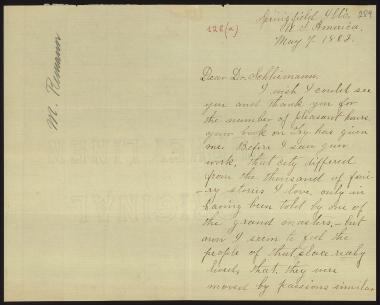 289
128(a)
Springfield, Illi.
U.S. America,
May 7. 1882.
M. Remann
Dear Dr. Schliemann.
I wish I could see
you and thank you for
the number of pleasant hours
your book on Troy has given
me. Before I saw your
work, that city differed
from the thousand of fair-
ry stories I love, only in
having been told by one of
the grand masters, - but
now I seem to feel the
people of that place really
lived, that, they were
moved by passions similar